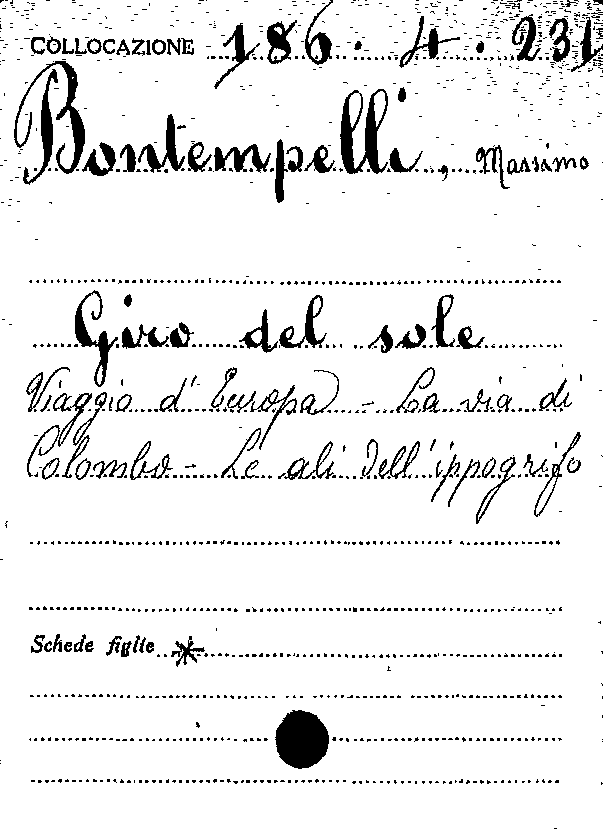 COLLOCAZIONE 186.4.231
Bontempelli, Massimo
Giro del sole
Viaggio d'Europa - La via di
Colombo - Le ali dell'ippogrifo
Schede figlie *